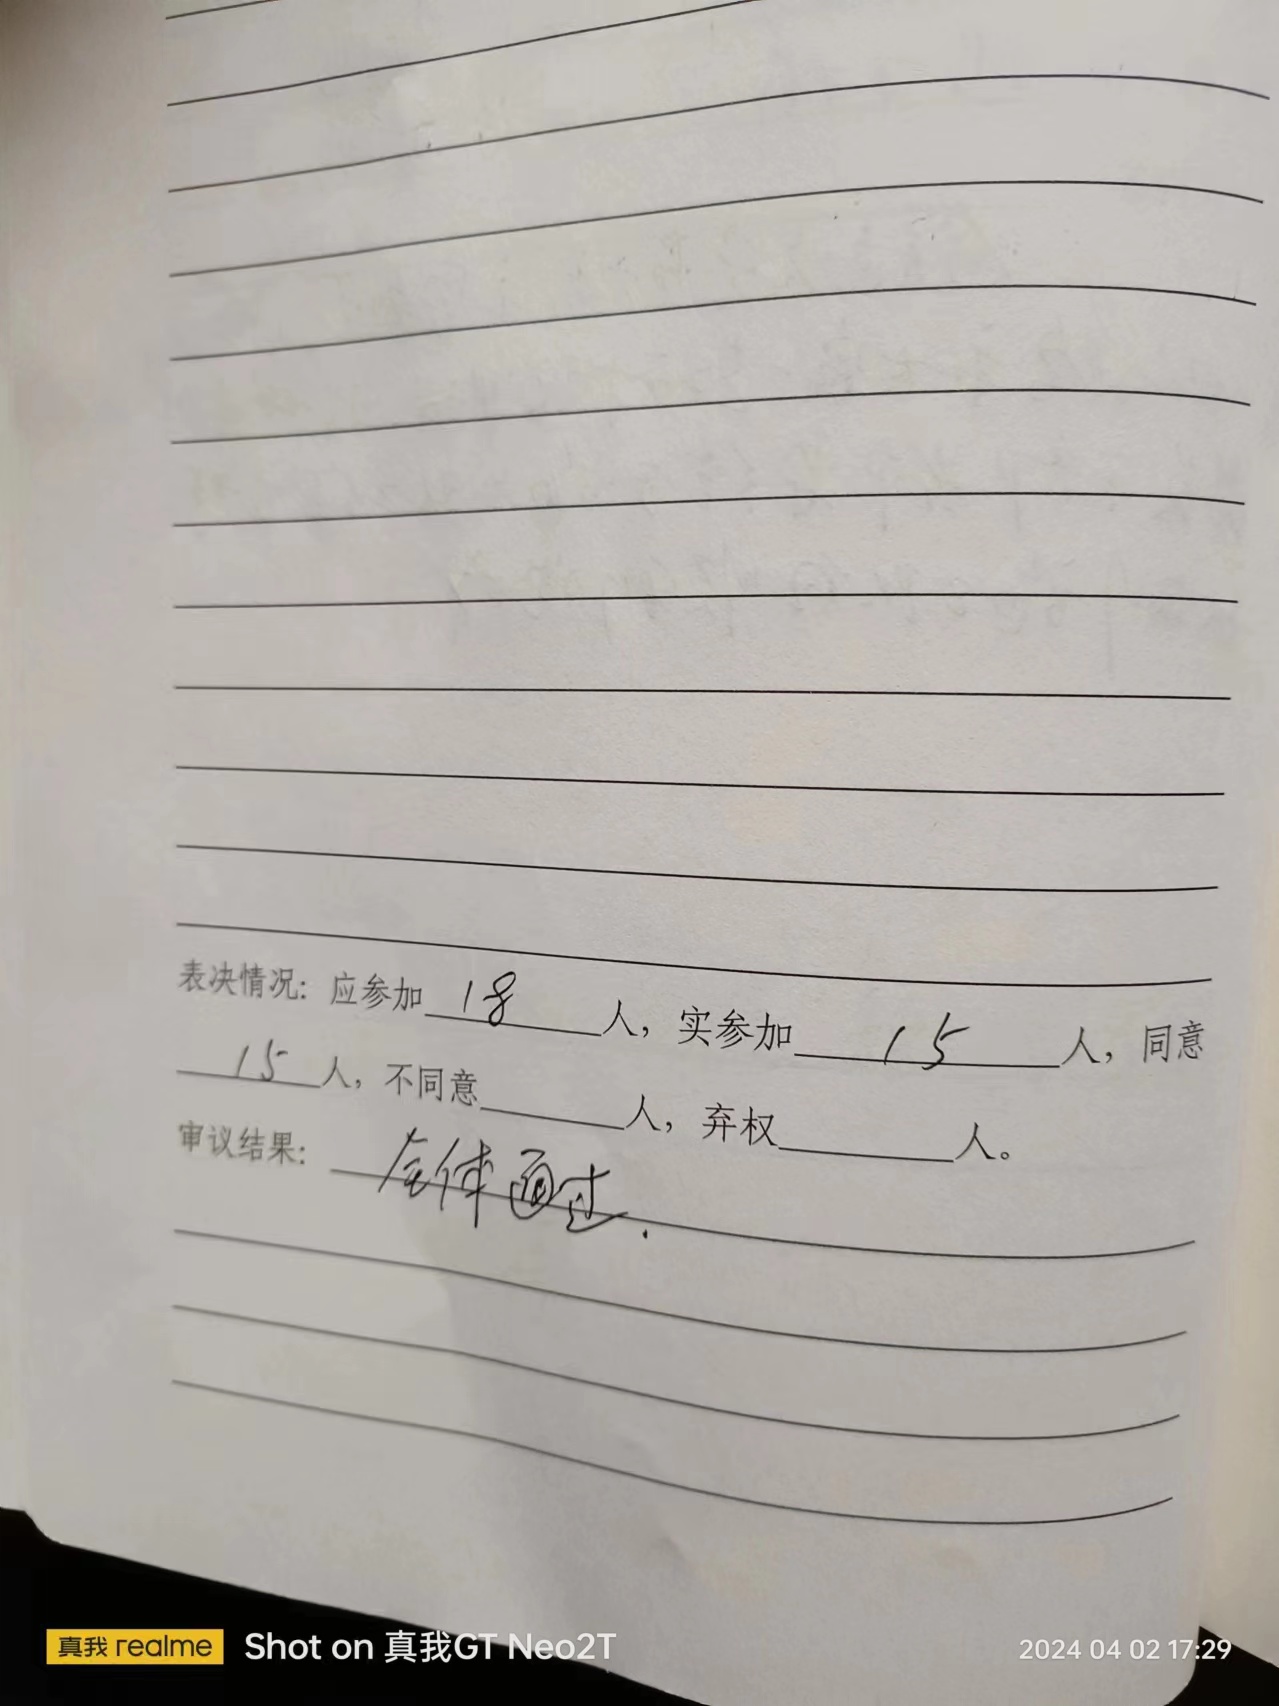 表决情况：应参加 18 人，实参加 15 人，同意
15 人，不同意____人，弃权____人。
审议结果：全体通过.
真我 realme Shot on 真我GT Neo2T 2024 04 02 17:29